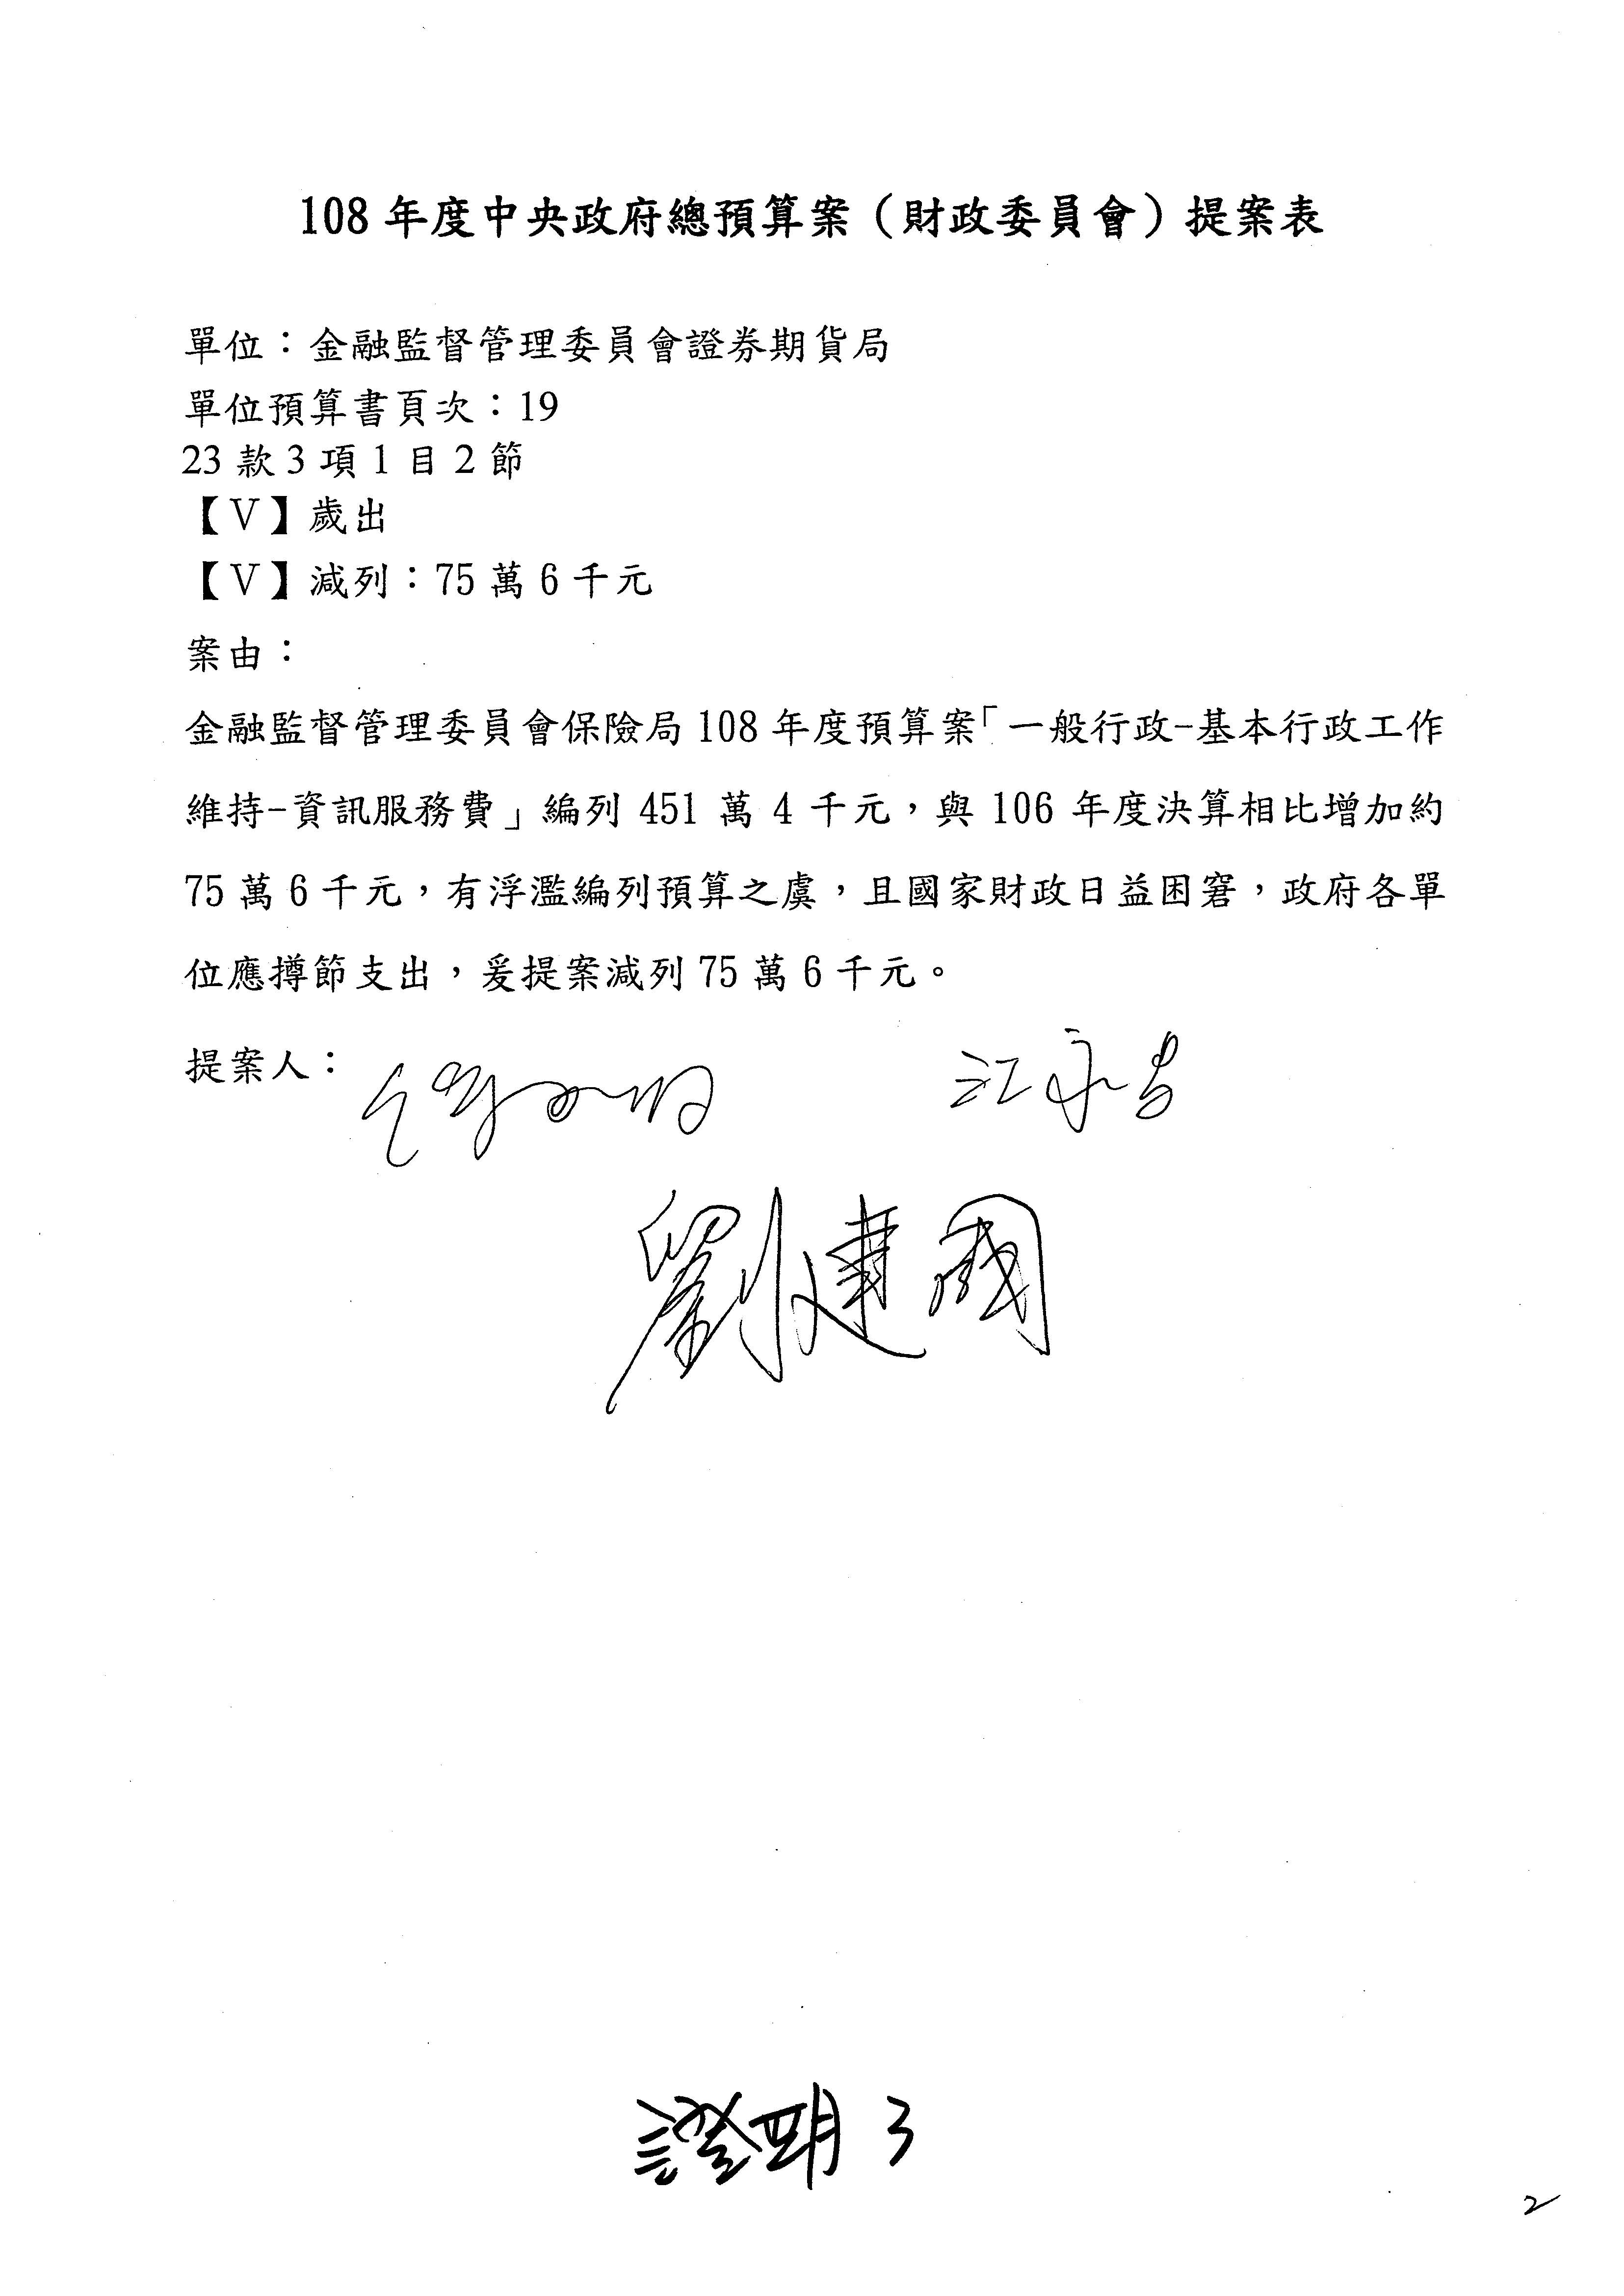 108 年度中央政府總預算案（財政委員會）提案表
單位：金融監督管理委員會證券期貨局
單位預算書頁次：19
23 款 3 項 1 目 2 節
【V】歲出
【V】減列：75 萬 6 千元
案由：
金融監督管理委員會保險局 108 年度預算案「一般行政-基本行政工作
維持-資訊服務費」編列 451 萬 4 千元，與 106 年度決算相比增加約
75 萬 6 千元，有浮濫編列預算之虞，且國家財政日益困窘，政府各單
位應撙節支出，爰提案減列 75 萬 6 千元。
提案人：
江永昌
劉建國
證期 3
2